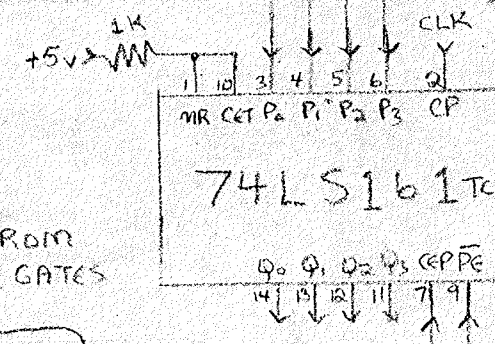 1K
+5V
CLK
1 10 3 4 5 6 2
MR CET P0 P1 P2 P3 CP
74LS161 TC
ROM
GATES
Q0 Q1 Q2 Q3 CEP P̅E̅
14 13 12 11 7 9